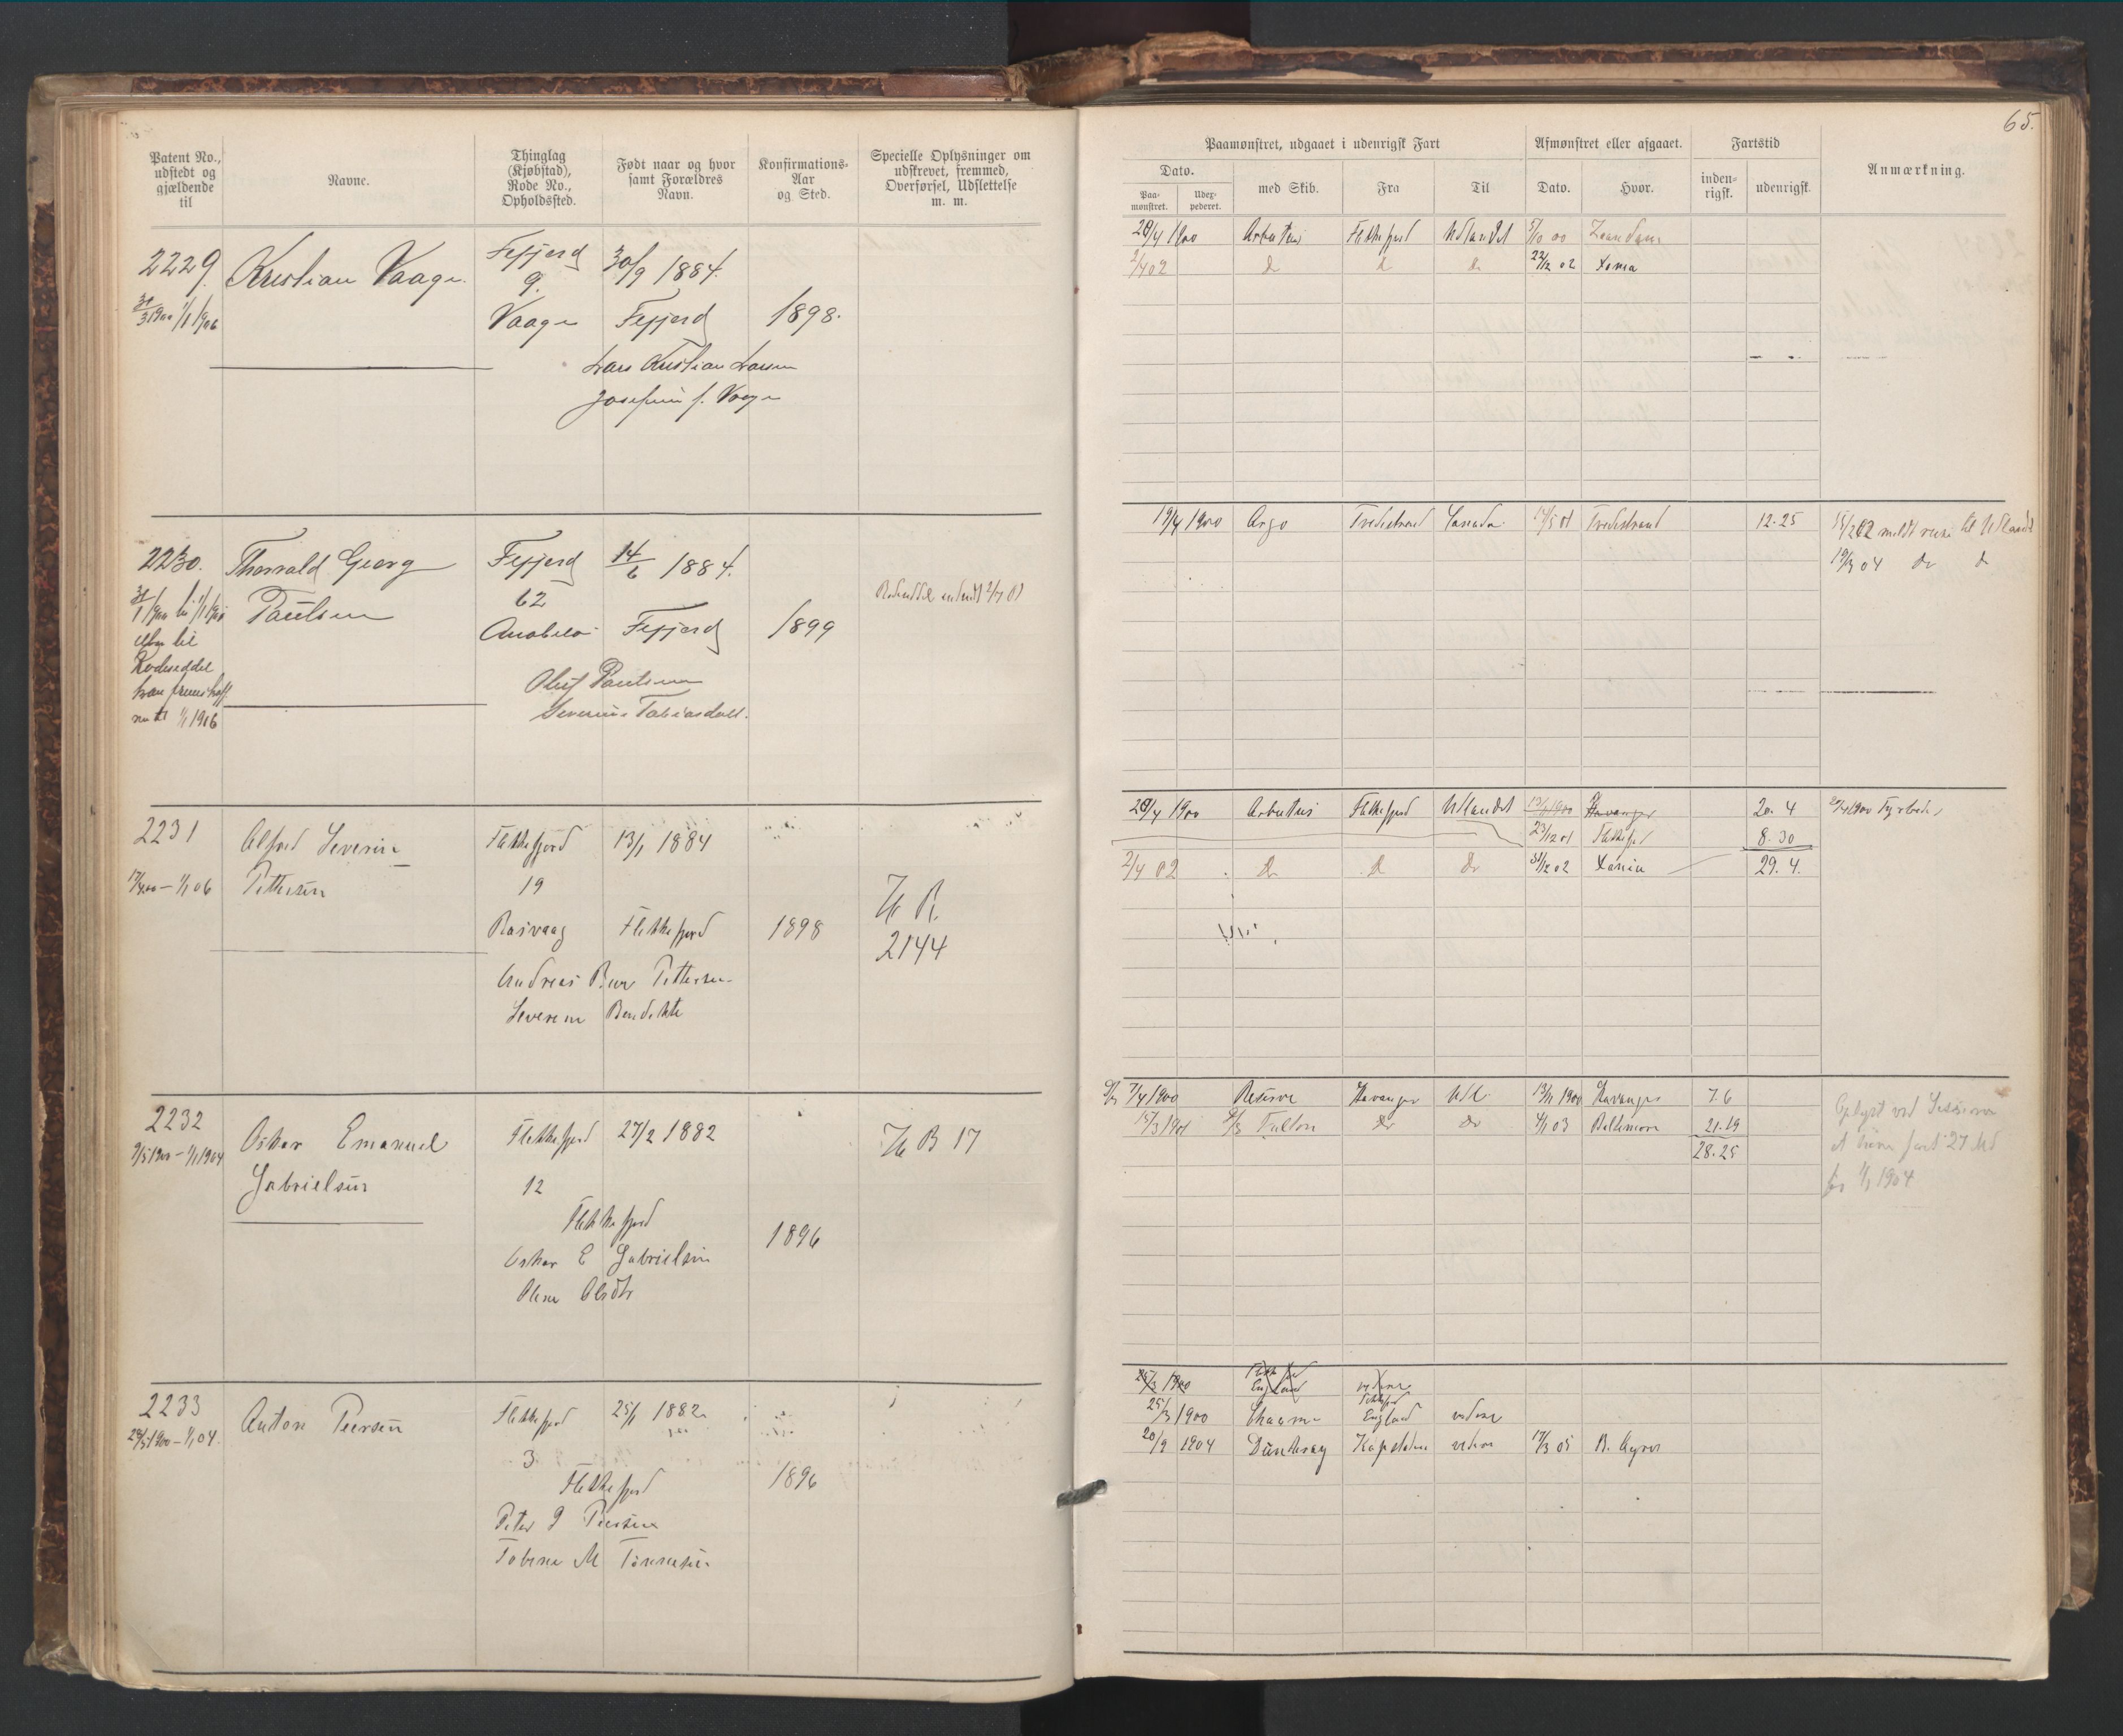 65.
Patent No., udstedt og gjældende til
Navne.
Thinglag (Kjøbstad), Rode No., Opholdssted.
Født naar og hvor samt Forældres Navn.
Konfirmations-Aar og Sted.
Specielle Oplysninger om udskrevet, fremmed, Overførsel, Udslettelse m. m.
Paamønstret, udgaaet i udenrigsk Fart
Afmønstret eller afgaaet.
Fartstid
Anmærkning.
Dato.
med Skib.
Fra
Til
Dato.
Hvor.
inden-rigsk.
udenrigsk.
Paa-mønstret.
Udex-pederet.
2229. Kristian Vaage Fefjord 30/9 1884.
9.
31/3 1900 1/1 1906 Vaage Fefjord 1898.
Lars Kristian Larsen
Josefine f. Vaage
28/4 1900 Arbutus Flekkefjord Udlandet 5/10 00 Zaandam
2/4 02 do do do 22/12 02 Xania
2230. Thorvald Georg Fefjord 14/6 1884.
Paulsen 62
Anabeløe Fefjord 1899
Rodeseddel
1/1 1906
Oluf Paulsen
Severine Tobiasdatt.
19/4 1900 Argo Tvedestrand Canada 14/5 01 Tvedestrand 12.25 15/2 02 meldt reise til Udlandet
19/3 04 do do
2231 Alfred Severin Flekkefjord 13/1 1884
17/4 00 – 1/1 06 Pettersen 19
Rasvaag Flekkefjord 1898
2144
Andreas Pettersen
Severine Bendikte
28/4 1900 Arbutus Flekkefjord Udlandet 13/1 1900 Stavanger 20. 4
23/12 01 Flekkefjord 8.30
2/4 02 do do do 31/12 02 Xania 29. 4.
2232 Oskar Emanuel Flekkefjord 27/2 1882 B 17
9/5 1900 – 1/1 1904 Gabrielsen 12
Flekkefjord
1896
Oskar E Gabrielsen
Olene Olsdtr
7/4 1900 Reserve Stavanger Udl. 13/11 1900 Stavanger 7.6
15/3 1901 Fulton do do 4/1 03 Baltimore 21.19
28.25
Oplyst ved Sessionen
at have fart 27 Md
før 1/1 1904
2233 Anton Peersen Flekkefjord 25/1 1882
28/3 1900 – 1/1 04. 3
Flekkefjord 1896
Peter Peersen
Tobine M Tønnesen
25/3 1900 England
25/3 1900 England videre
20/9 1904 Kapstaden videre 17/3 05 B. Ayres